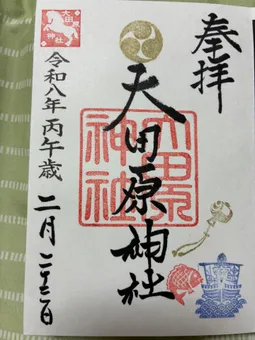 奉拝
大田原神社
大田原
神社
令和八年丙午歳二月二十二日
大田原
神社